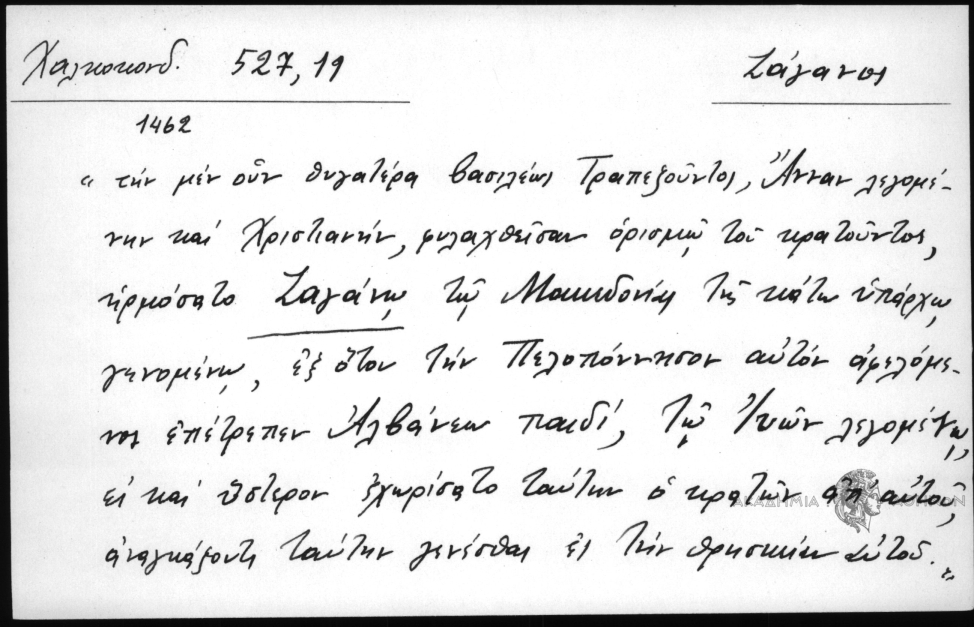 Χαλκοκονδ. 527,19 Ζάγανος
1462
"τήν μέν οὖν θυγατέρα βασιλέως Τραπεζοῦντος, Ἄνναν λεγομέ-
νην καί Χριστιανήν, φυλαχθεῖσαν ὁρισμῷ τοῦ κρατοῦντος,
ἡρμόσατο Ζαγάνῳ τῷ Μακεδονίας τῆς κάτω ὑπάρχῳ
γενομένῳ, ἐξ ὅτου τήν Πελοπόννησον αὐτόν ἀφελόμε-
νος ἐπέτρεπεν Ἀλβάνεω παιδί, τῷ λεγομένῳ,
εἰ καί ὕστερον ἐχωρίσατο ταύτην ὁ κρατῶν ἀπ' αὐτοῦ,
ἀναγκάζοντι ταύτην γενέσθαι ἐς τήν θρησκείαν αὐτοῦ."
ΑΚΑΔΗΜΙΑ ΑΘΗΝΩΝ